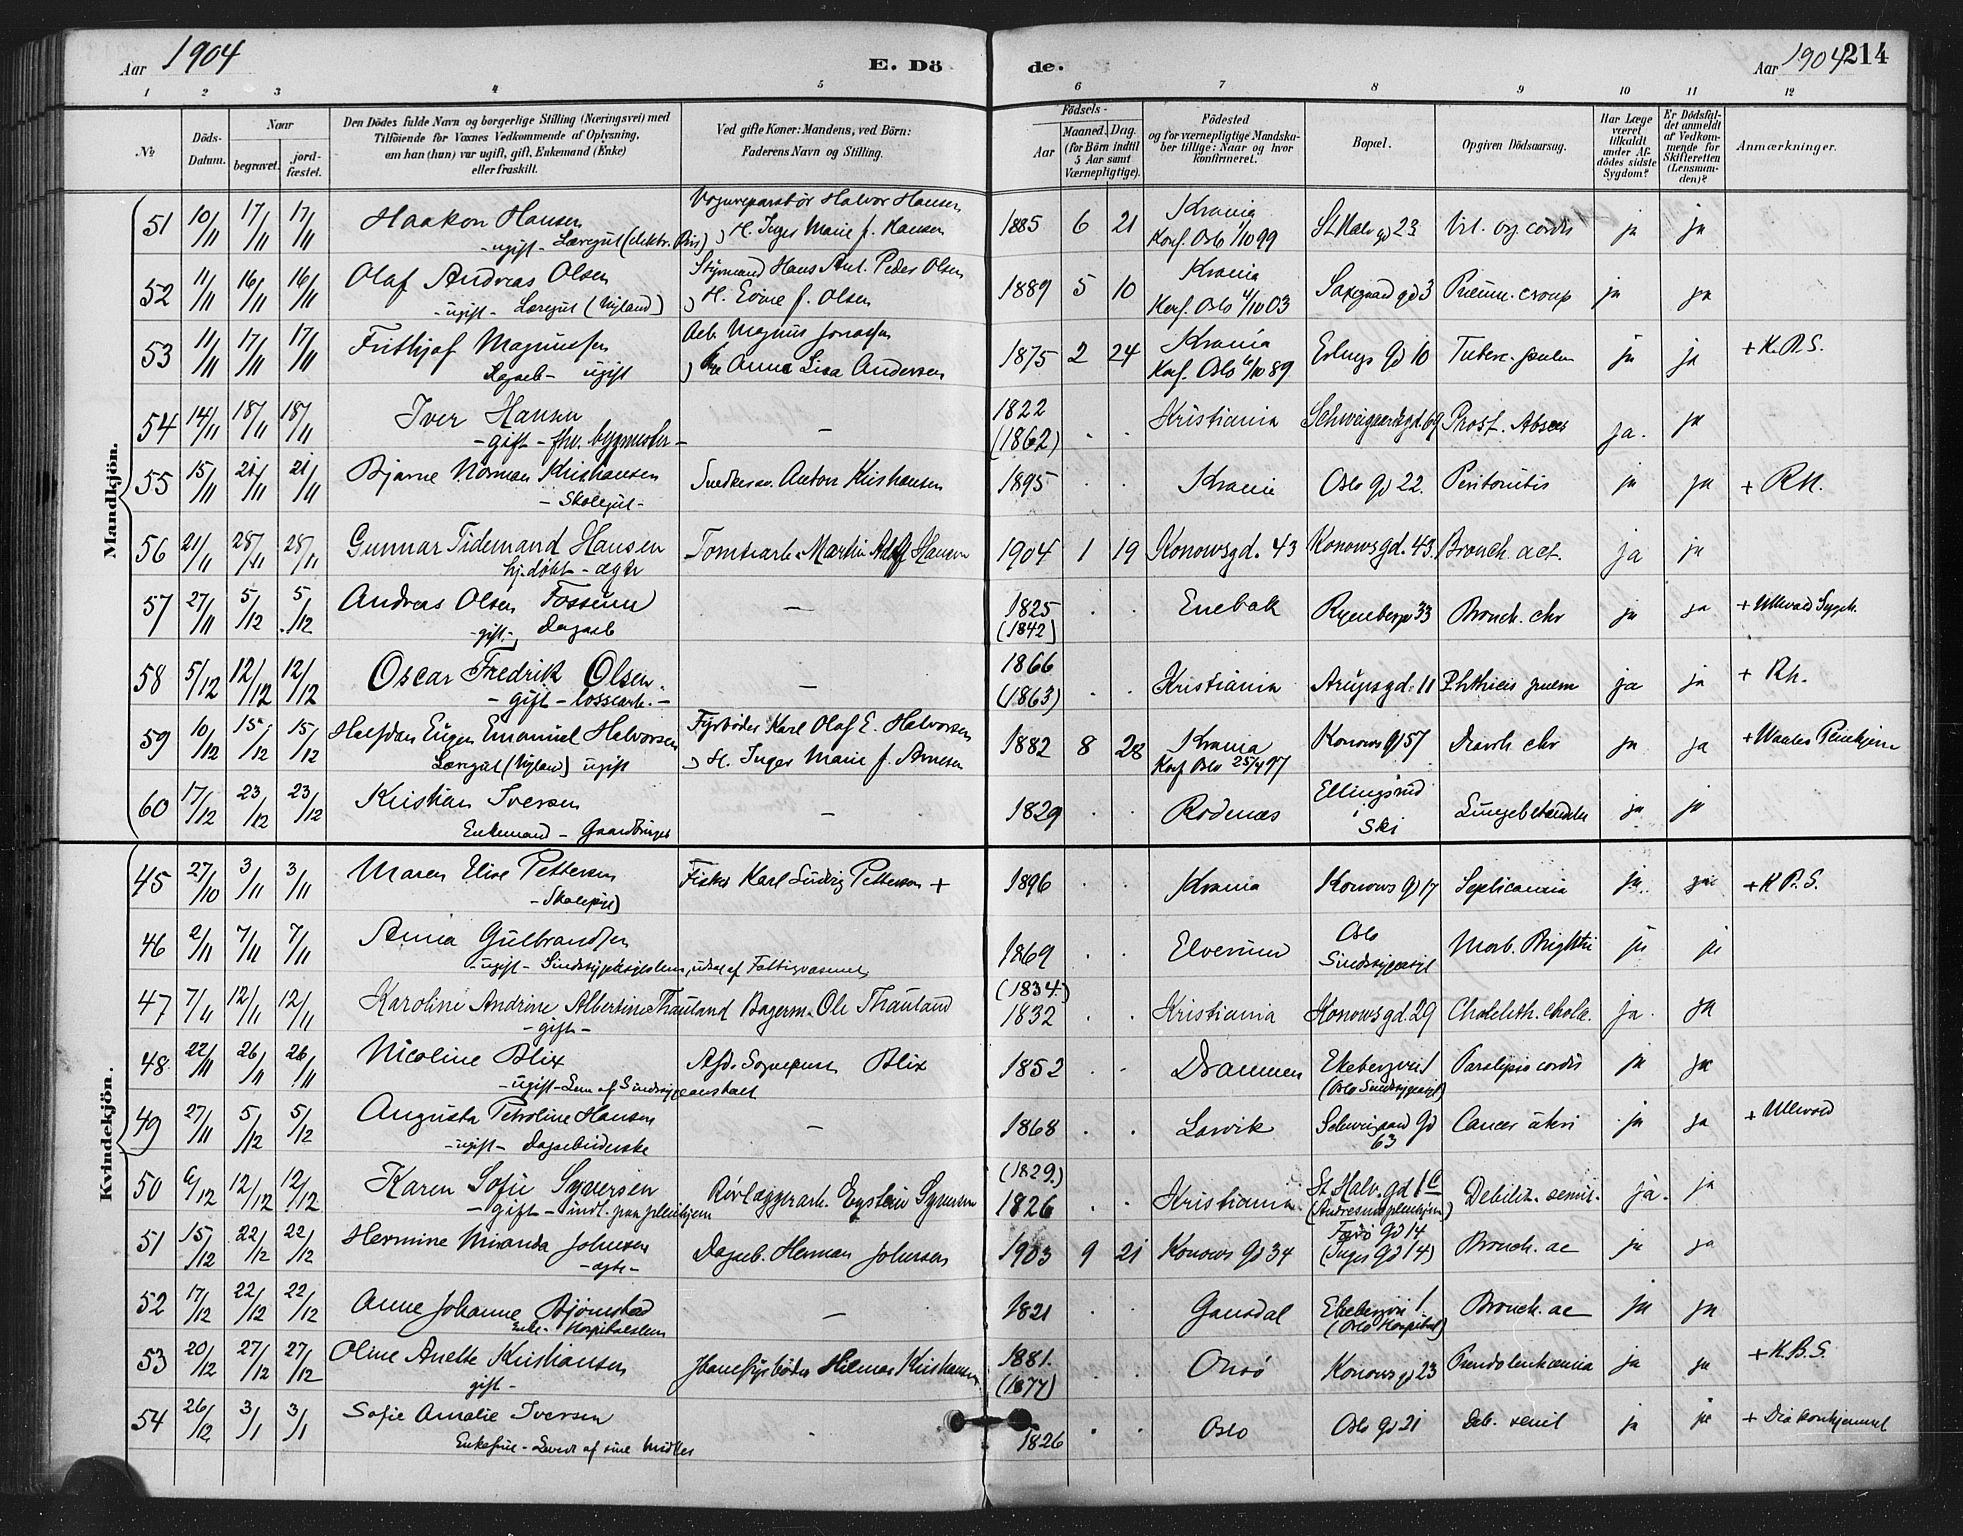 Aar 1904
E. Dö
de.
Aar 1904 214
1 2 3 4 5 6 7 8 9 10 11 12
No.
Döds-Datum.
Naar
begravet.
jord-fæstet.
Den Dödes fulde Navn og borgerlige Stilling (Næringsvei) med
Tilföiende for Voxnes Vedkommende af Oplysning,
om han (hun) var ugift, gift, Enkemand (Enke)
eller fraskilt.
Ved gifte Koner: Mandens, ved Börn:
Faderens Navn og Stilling.
Födsels-
Aar
Maaned. Dag.
(for Börn indtil
5 Aar samt
Værnepligtige).
Födested
og for værnepligtige Mandska-
ber tillige: Naar og hvor
konfirmeret.
Bopæl.
Opgiven Dödsaarsag.
Har Læge
været
tilkaldt
under Af-
dödes sidste
Sygdom?
Er Dödsfal-
det anmeldt
af Vedkom-
mende for
Skifteretten
(Lensman-
den)?
Anmærkninger.
Mandkjön.
51 10/11 17/11 17/11 Haakon Hansen Halvor Hansen 1885 6 21 Krania St Halv gd 23 Vit. org cordis ja ja
- ugift - Læregut H. Inger Marie f. Hansen Konf. Oslo 1/10 99
52 11/11 16/11 16/11 Olaf Andreas Olsen Styrmand Hans Ant. Peder Olsen 1889 5 10 Krania Saxegaard gd 3 Pneum. croup ja ja
- ugift - Læregut H. f. Olsen Konf. Oslo 4/10 03
53 11/11 17/11 17/11 Frithjof Magnussen Arb. Magnus Jonassen 1875 2 24 Krania Erlings Gd 10 Tuberc. pulm ja ja + K.P.S.
Dagarb - ugift Anna Lisa Andersen Konf. Oslo 6/10 89
54 14/11 18/11 18/11 Iver Hansen — 1822 (1862) Kristiania Schweigaardsgd. 69 Prost. Absces ja. ja
- gift - fhv. bygmester -
55 15/11 21/11 21/11 Bjarne Norman Kristiansen Snedkersv. Anton Kristiansen 1895 Krania Oslo Gd 22. Peritonitis ja ja + RH.
- Skolegut -
56 21/11 28/11 28/11 Gunnar Tidemand Hansen Tomtearb. Martin Adolf Hansen 1904 1 19 Konowsgd. 43 Konowsgd. 43. Bronch. act. ja ja
hj.døbt - ægte
57 27/11 5/12 5/12 Andreas Olsen Fossum — 1825 (1842) Enebak Ryenbergv 33 Bronch. chr ja ja + Ullevaal Sygeh.
- gift - Dagarb
58 5/12 12/12 12/12 Oscar Fredrik Olsen — 1866 (1863) Kristiania Arupsgd. 11 Phthisis pulm ja ja + Rh.
- gift - lossearb. -
59 10/12 15/12 15/12 Halfdan Eugen Emanuel Halvorsen Fyrbøder Karl Olaf E. Halvorsen 1882 8 28 Krania Konows Gd 57 Diarrh. chr ja ja
Læregut ugift H. Inger Marie f. Arnesen Konf Oslo 25/4 97
60 17/12 23/12 23/12 Kristian Iversen — 1829 Rødenæs Ellingsrud Ski Lungebetændelse ja ja
Enkemand - Gaardbruger
Kvindekjön.
45 27/10 3/11 3/11 Maren Elise Pettersen Fisker Karl Ludvig Petterson + 1896 Krania Konows Gd 17 Septicæmia ja ja + K P.S.
- Skolepige
46 2/11 7/11 7/11 Anna Gulbrandsen 1869 Elverum Oslo Sindssygeasyl Morb. Brightii ja ja
- ugift - af Fattigvæsenet
47 7/11 12/11 12/11 Karoline Andrine Albertine Thauland Bagerm. Ole Thauland (1834.) 1832 Kristiania Konowsgd. 29 Cholelith. ja. ja
- gift -
48 22/11 26/11 26/11 Nicoline Blix Afd. Sogneprest Blix 1852 Drammen Ekebergvei 1 (Oslo Sindssygeasyl) Paralysis cordis ja ja
- ugift - Lem af Sindssygeanstalt
49 27/11 5/12 5/12 Augusta Petroline Hansen — 1868 Larvik Schweigaard Gd 63 Cancer uteri ja ja + Ullevold
- ugift - Dagarbeiderske
50 6/12 12/12 12/12 Karen Sofie Syversen Rørlæggerarb. Eystein Syversen (1829.) 1826 Kristiania St. Halv. gd 1 C Debilit. senis. ja. ja
- gift - indl. paa pleiehjem
51 15/12 22/12 22/12 Hermine Miranda Johnsen Dagarb. Herman Johnsen 1903 9 21 Konows Gd 34 (Inges Gd 14) Bronch. ac ja ja
- ægte -
52 17/12 22/12 22/12 Anne Johanne Bjørnstad — 1821 Gausdal Ekebergvei 1 (Oslo Hospital) Bronch. ac ja ja
Enke - Hospitalslem
53 20/12 27/12 27/12 Oline Anette Kristiansen Hilmar Kristiansen 1881. (1877) Onsø Konows gd 23 Pseudoleukæmia ja ja + K.B.S.
gift -
54 26/12 3/1 3/1 Sofie Amalie Iversen 1826 Oslo Oslo Gd 21 Deb. senil ja ja + Diakonhjemmet
Enkefrue - Levede af sine Midler